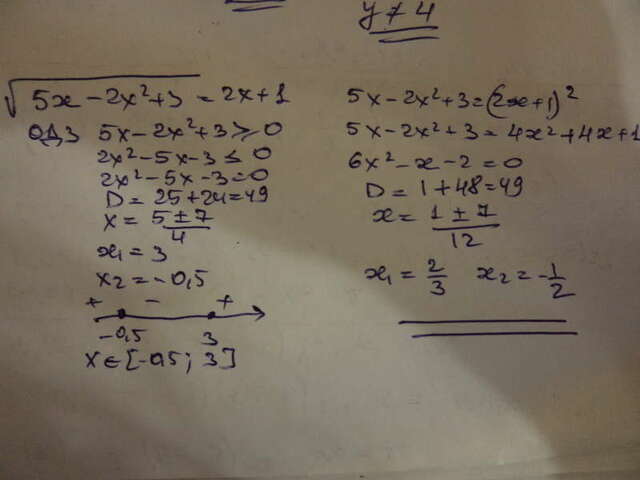 y ≠ 4
√5x - 2x² + 3 = 2x + 1
ОДЗ 5x - 2x² + 3 ≥ 0
2x² - 5x - 3 ≤ 0
2x² - 5x - 3 = 0
D = 25 + 24 = 49
x = 5 ± 7
4
x₁ = 3
x₂ = -0,5
+ - +
-0,5 3
x ∈ [-0,5; 3]
5x - 2x² + 3 = (2x + 1)²
5x - 2x² + 3 = 4x² + 4x + 1
6x² - x - 2 = 0
D = 1 + 48 = 49
x = 1 ± 7
12
x₁ = 2/3 x₂ = -1/2